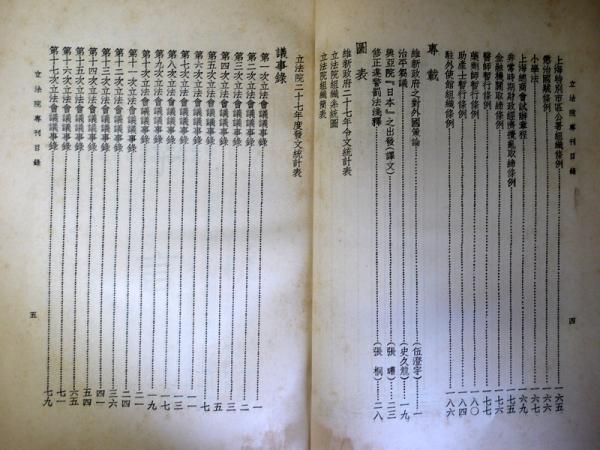 立法院專刊目錄
四
上海特別市區公署組織條例 六五
懲治國賊條例 六六
小學法 六七
上海總商會試辦章程 六九
非常時期財政經濟擾亂取締條例 七五
金融機關取締條例 七七
醫師暫行條例 七七
藥師暫行條例 八〇
助產士暫行條例 八四
駐外使館組織條例 八六
專載
維新政府之對外國策論 (伍澄宇) 一
治平芻議 (史久龍) 一九
興亞院『日本』之出發(譯文) (張曙) 二三
修正違警罰法淺釋 (張桐) 二八
圖表
維新政府二十七年令文統計表
立法院組織系統圖
立法院組織簡表
立法院二十七年度發文統計表
議事錄
第一次立法會議議事錄 一
第二次立法會議議事錄 一
第三次立法會議議事錄 二
第四次立法會議議事錄 三
第五次立法會議議事錄 五
第六次立法會議議事錄 七
第七次立法會議議事錄 一一
第八次立法會議議事錄 一三
第九次立法會議議事錄
第十次立法會議議事錄 一九
第十一次立法會議議事錄 二一
第十二次立法會議議事錄 二四
第十三次立法會議議事錄 三六
第十四次立法會議議事錄 五四
第十五次立法會議議事錄 六五
第十六次立法會議議事錄 七一
第十七次立法會議議事錄 七九
立法院專刊目錄
五